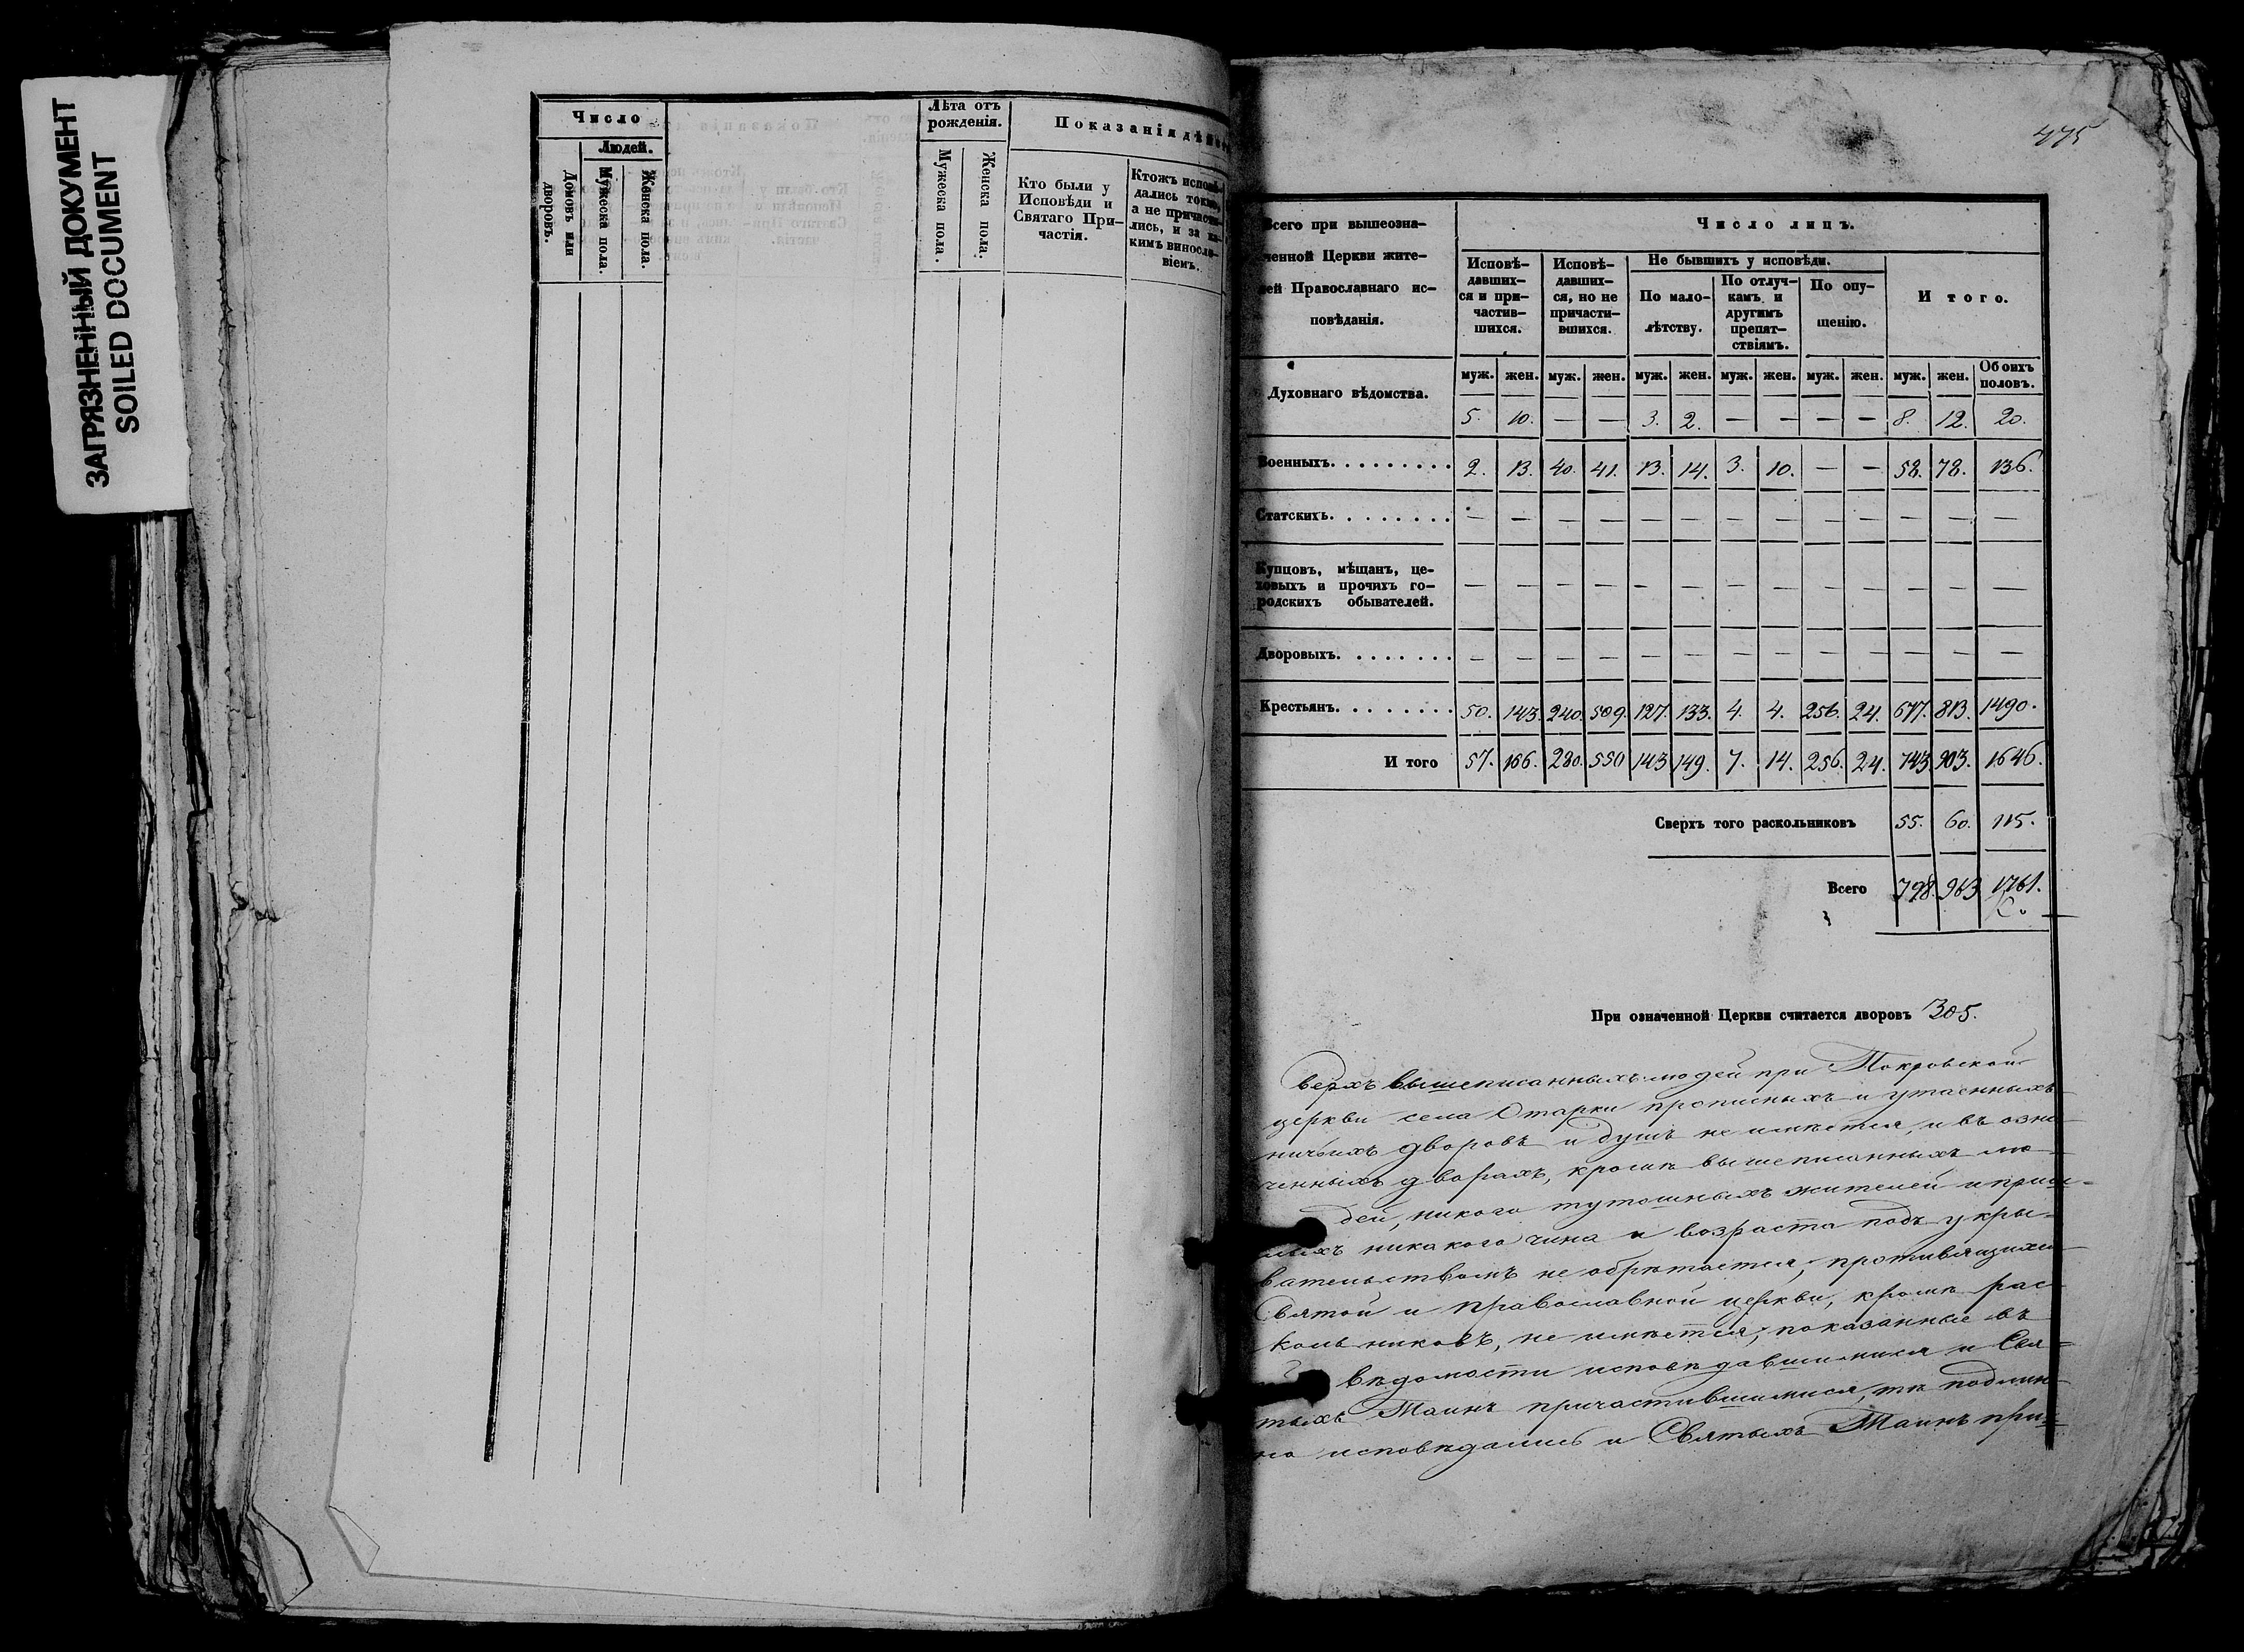 ЗАГРЯЗНЕННЫЙ ДОКУМЕНТ
SOILED DOCUMENT
Число
Людей.
Домовъ или дворовъ.
Мужеска пола.
Женска пола.
Лѣта отъ рожденія.
Мужеска пола.
Женска пола.
Показанія дѣйс
Кто были у
Исповѣди и
Святаго При-
частія.
Ктожъ исповѣ-
дались токмо,
а не причасти-
лись, и за ка-
кимъ винос��о-
віемъ.
475
Всего при вышеозна-
ченной Церкви жите-
лей Православнаго ис-
повѣданія.
Число лицъ.
Исповѣ-
давших-
ся и при-
частив-
шихся.
Исповѣ-
давших-
ся, но не
причасти-
вшихся.
Не бывшихъ у исповѣди.
По мало-
лѣтству.
По отлуч-
камъ и
другимъ
препят-
ствіямъ.
По опу-
щенію.
Итого.
муж. жен. муж. жен. муж. жен. муж. жен. муж. жен. муж. жен. Обоихъ половъ.
Духовнаго вѣдомства. 5. 10. — — 3. 2. — — — — 8. 12. 20.
Военныхъ. 2. 13. 40. 41. 13. 14. 3. 10. — — 58. 78. 136.
Статскихъ. — — — — — — — — — — — — —
Купцовъ, мѣщанъ, це-
ховыхъ и прочихъ го-
родскихъ обывателей. — — — — — — — — — — — — —
Дворовыхъ. — — — — — — — — — — — — —
Крестьянъ. 50. 143. 240. 509. 127. 133. 4. 4. 256. 24. 677. 813. 1490.
И того 57. 166. 280. 550 143 149. 7. 14. 256. 24. 743 903. 1646.
Сверхъ того раскольниковъ 55. 60. 115.
Всего 798. 963 1761.
При означенной Церкви считается дворовъ 305.
верхъ вышеписанныхъ людей при Покровской
церкви села Старки прописныхъ и утаенныхъ
ничьихъ дворовъ и душъ не имѣется, и въ озна-
ченныхъ дворахъ, кромѣ вышеписанныхъ лю-
дей, никого тутошныхъ жителей и приш-
лыхъ никакого чина и возраста подъ укры-
вательствомъ не обрѣтается; противящихся
Святой и православной церкви, кромѣ рас-
кольниковъ, не имѣется; показанные въ
вѣдомости исповѣдавшимися и Свя-
тыхъ Таинъ причастившимися, тѣ подлин-
но исповѣдались и Святыхъ Таинъ при-